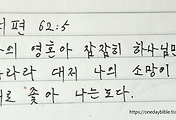 편 62:5
영혼아 잠잠히 하나님만
바라라 대저 나의 소망이
좇아 나는도다.
https://onedaybible.tis